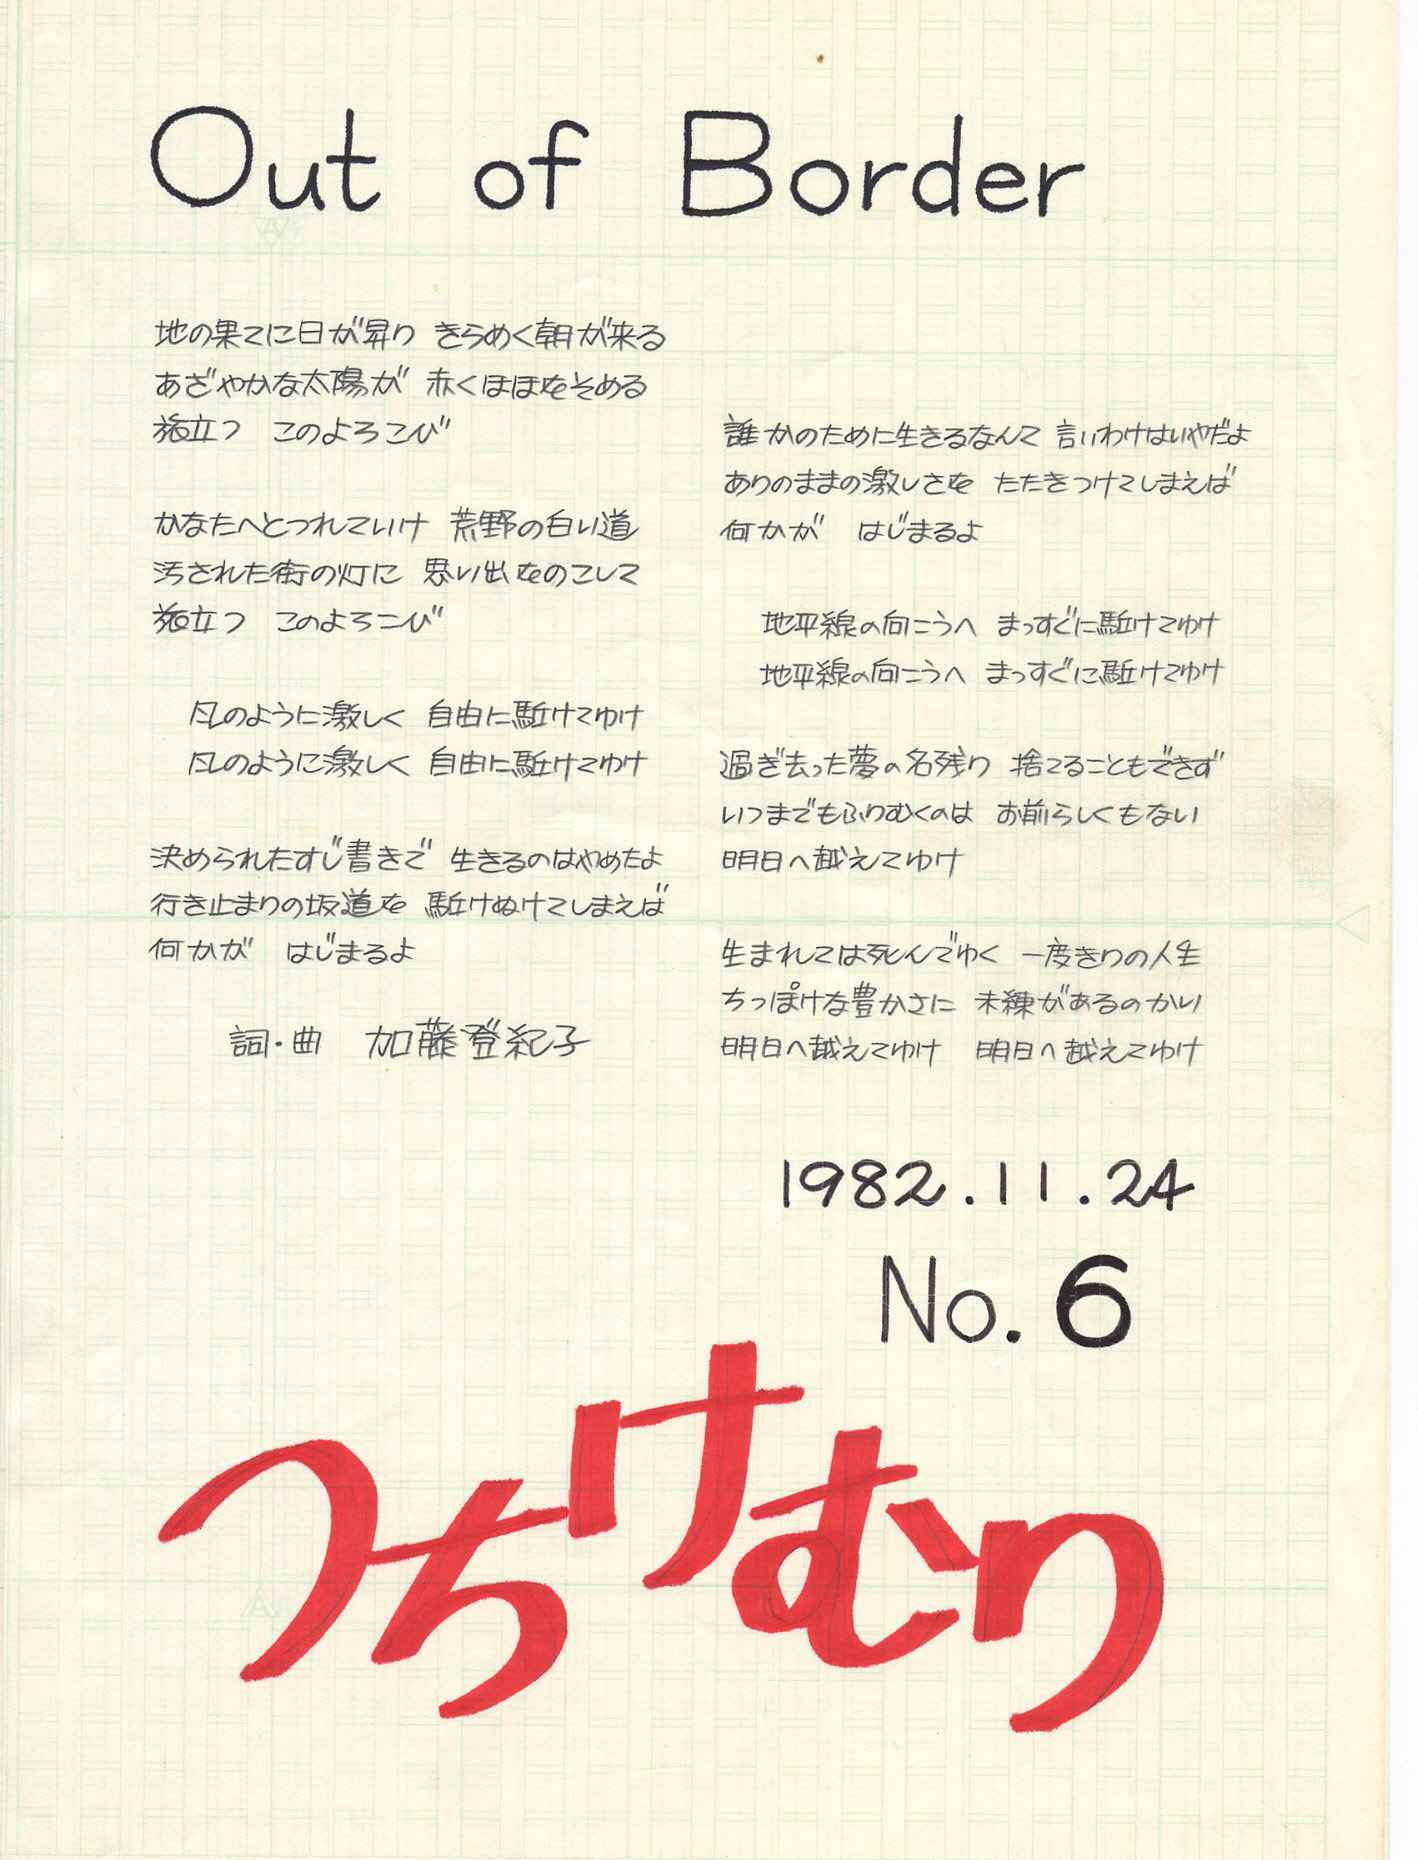 Out of Border
地の果てに日が昇り きらめく朝が来る
あざやかな太陽が 赤くほほをそめる
旅立つ このよろこび
かなたへとつれていけ 荒野の白い道
汚された街の灯に 思い出をのこして
旅立つ このよろこび
風のように激しく 自由に駈けてゆけ
風のように激しく 自由に駈けてゆけ
決められたすじ書きで 生きるのはやめたよ
行き止まりの坂道を 駈けぬけてしまえば
何かが はじまるよ
詞・曲 加藤登紀子
誰かのために生きるなんて 言いわけはいやだよ
ありのままの激しさを たたきつけてしまえば
何かが はじまるよ
地平線の向こうへ まっすぐに駈けてゆけ
地平線の向こうへ まっすぐに駈けてゆけ
過ぎ去った夢の名残り 捨てることもできず
いつまでもふりむくのは お前らしくもない
明日へ越えてゆけ
生まれては死んでゆく 一度きりの人生
ちっぽけな豊かさに 未練があるのかい
明日へ越えてゆけ 明日へ越えてゆけ
1982.11.24
No.6
つちけむり